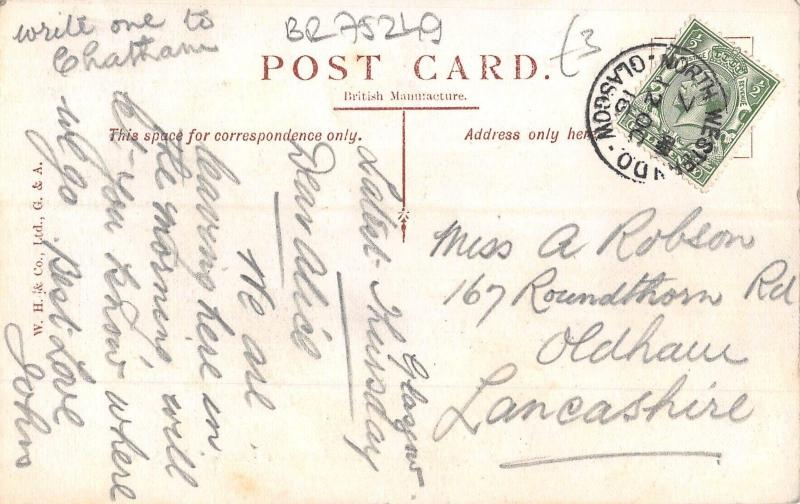 write one to
Chatham
BR75249
£3
POST CARD.
British Manufacture.
This space for correspondence only.
Address only here
W. H. & Co., Ltd., G. & A.
NORTH WESTERN
GLASGOW
Glasgow
Latest - Thursday
Dear Alice
We are
leaving here in
the morning will
let you know where
we go. Best Love
John
Miss A Robson
167 Roundthorn Rd
Oldham
Lancashire